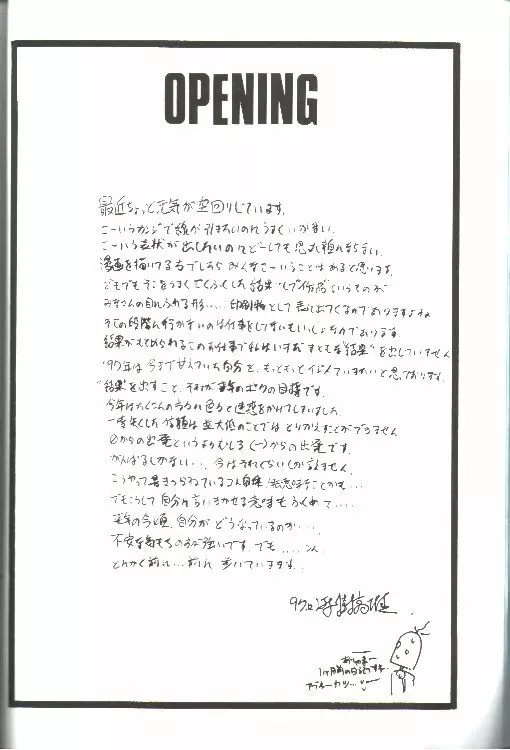 OPENING
最近ちょっと元気が空回りしています。
こーいうカンジで線が引きたいのにうまくいかない。
こーいう表状が出したいのにどーしても思え
漫画を描いてる方でしたらみんなこーいうことはあると思います。
でもでもそこをうまく した結果
みなさんの目にふれる形…印刷物として出てくるのでありますよね
その段階に行かないのは仕事をしてないもいっしょなのであります。
結果がもとめられるこのお仕事で私はいまだまともな"結果"を出していません
'97年は今まで甘えていた自分を、もっともっとイジメていきたいと思っております。
"結果"を出すこと、それが来年のボクの目標です。
今年はたくさんの方々に色々と迷惑をかけてしまいました
一度失くした信頼は並大低のことではとりかえすことができません
0からの出発というよりむしろ(ー)からの出発です。
がんばるしかない…、今はそれくらいしか言えません。
こうやって書きつらねていること自体 なことかも…
でもこうして自分に言いきかせる意味もふくめて…、
来年の今頃、自分がどうなっているのか…、
不安な気もちの方が強いです。でも……
とにかく前に…前に歩いていきます。
1ヶ月前の日記ですね…